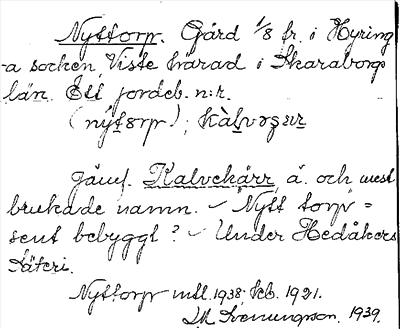 Nyttorp. Gård 1/8 fr. i Hyring
-a socken, Viste härad i Skaraborgs
län. Ett jordeb. n:r.
(nýtorp); kàlvəʒær
Jämf. Kalvekärr, ä. och mest
brukade namn. – Nytt torp =
sent bebyggt? – Under Hedåkers
Säteri.
Nyttorp mtl. 1938. kb. 1921.
1939.